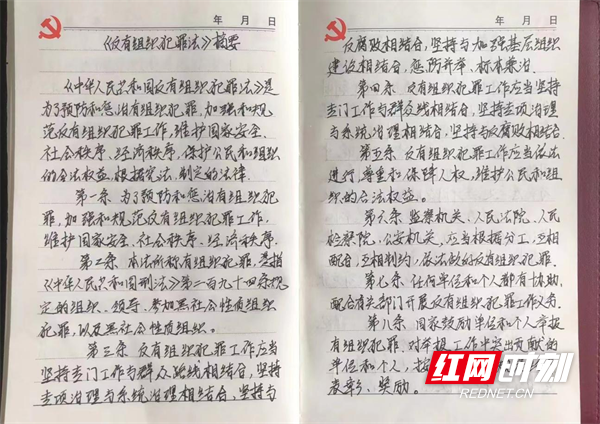 年 月 日
《反有组织犯罪法》摘要
《中华人民共和国反有组织犯罪法》是
为了预防和惩治有组织犯罪，加强和规
范反有组织犯罪工作，维护国家安全、
社会秩序、经济秩序，保护公民和组织
的合法权益，根据宪法，制定的法律。
第一条 为了预防和惩治有组织犯
罪，加强和规范反有组织犯罪工作，
维护国家安全、社会秩序、经济秩序，
第二条 本法所称有组织犯罪，是指
《中华人民共和国刑法》第二百九十四条规
定的组织、领导、参加黑社会性质组织
犯罪，以及黑社会性质组织。
第三条 反有组织犯罪工作应当
坚持专门工作与群众路线相结合，坚持
专项治理与系统治理相结合，坚持与
年 月 日
反腐败相结合，坚持与加强基层组织
建设相结合，惩防并举、标本兼治。
第四条 反有组织犯罪工作应当坚持
专门工作与群众线相结合，坚持专项治理
与系统治理相结合，坚持与反腐败相结合
第五条 反有组织犯罪工作应当依法
进行，尊重和保障人权，维护公民和组
织的合法权益。
第六条 监察机关、人民法院、人民
检察院、公安机关，应当根据分工，互相
配合，互相制约，依法做好反有组织犯罪
第七条 任何单位和个人都有协助、
配合有关部门开展反有组织犯罪工作义务。
第八条 国家鼓励单位和个人举报
有组织犯罪。对举报工作中突出贡献的
单位和个人，按
表彰、奖励。
红网时刻
REDNET.CN